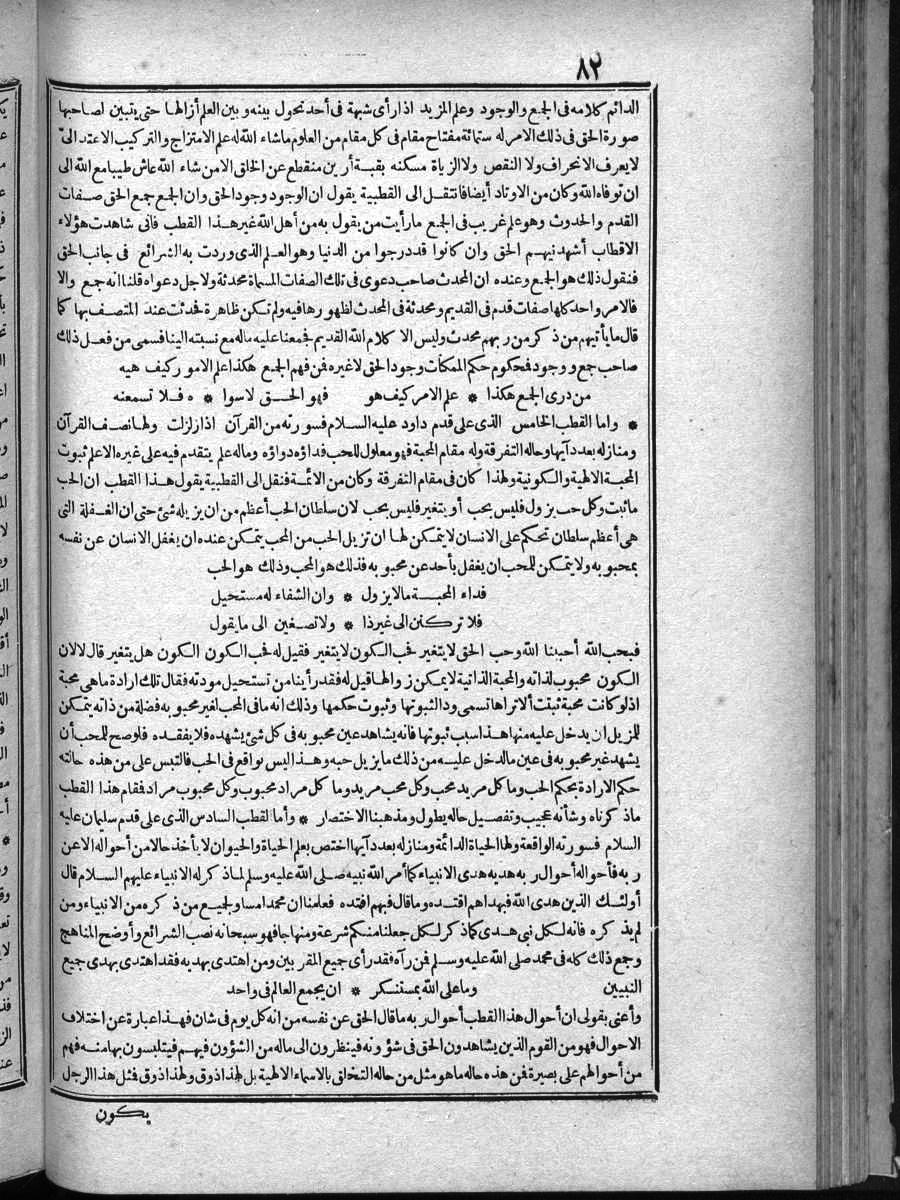 ٨٢
الدائم كلامه فى الجمع والوجود وعلم المزيد اذا رأى شبهة فى أحد تحول بينه وبين العلم أزالها حتى يتبين لصاحبها
صورة الحق فى ذلك الامر له ستمائة مفتاح مقام فى كل مقام من العلوم ماشاء الله له علم الامتزاج والتركيب الاعتدالىّ
لا يعرف الانحراف ولا النقص ولا الزيادة مسكنه بقبة أرين منقطع عن الخلق الامن شاء الله عاش طيبا مع الله الى
ان توفاه الله وكان من الاوتاد أيضا فانتقل الى القطبية يقول ان الوجود وجود الحق وان الجمع جمع الحق صفات
القدم والحدوث وهو علم غريب فى الجمع مارأيت من يقول به من أهل الله غير هذا القطب فانى شاهدت هؤلاء
الاقطاب أشهدنيهم الحق وان كانوا قد درجوا من الدنيا وهو العلم الذى وردت به الشرائع فى جانب الحق
فنقول ذلك هو الجمع وعنده ان المحدث صاحب دعوى فى تلك الصفات المسماة محدثة ولاجل دعواه قلنا انه جمع والا
فالامر واحد كلها صفات قدم فى القديم ومحدثة فى المحدث لظهورها فيه ولم تكن ظاهرة فحدثت عند المتصف بها كما
قال مايأتيهم من ذكر من ربهم محدث وليس الا كلام الله القديم فجمعنا عليه ماله مع نسبته الينا فسمى من فعل ذلك
صاحب جمع ووجود فحكوم حكم الممكنات وجود الحق لاغيره فمن فهم الجمع هكذا علم الامور كيف هيه
من درى الجمع هكذا * علم الامر كيف هو فهو الحق لاسوا * ه فلا تسمعنه
* واما القطب الخامس الذى على قدم داود عليه السلام فسورته من القرآن اذا زلزلت ولها نصف القرآن
ومنازله بعدد آيها وحاله التفرقة وله مقام المحبة فهو معلول للحب فداؤه دواؤه وماله علم يتقدم فيه على غيره الاعلم ثبوت
المحبة الالهية والكونية ولهذا كان فى مقام التفرقة وكان من الائمة فنقل الى القطبية يقول هذا القطب ان الحب
ماثبت وكل حب يزول فليس بحب أو يتغير فليس بحب لان سلطان الحب أعظم من ان يزيله شئ حتى ان الغفلة التى
هى أعظم سلطان تحكم على الانسان لايتمكن لها ان تزيل الحب من المحب يتمكن عنده ان يغفل الانسان عن نفسه
بمحبوبه ولا يتمكن للمحب ان يغفل بأحد عن محبوبه فذلك هو المحب وذلك هو الحب
فداء المحبة مالا يزول * وان الشفاء له مستحيل
فلا تركنن الى غير ذا * ولا تصغين الى ما يقول
فبحب الله أحببنا الله وحب الحق لا يتغير فحب الكون لا يتغير فقيل له فحب الكون الكون هل يتغير قال لا لان
الكون محبوب لذاته والمحبة الذاتية لايمكن زوالها قيل له فقد رأينا من تستحيل مودته فقال تلك ارادة ماهى محبة
اذلو كانت محبة ثبتت ألا تراها تسمى ودا لثبوتها وثبوت حكمها وذلك انه مافى المحب لغير محبوبه فضلة من ذاته يتمكن
للمزيل ان يدخل عليه منها هذا سبب ثبوتها فانه يشاهد عين محبوبه فى كل شئ يشهده فلا يفقده فلو صح للمحب أن
يشهد غير محبوبه فى عين مالدخل عليه من ذلك مايزيل حبه وهذا ليس بواقع فى الحب فالتبس على من هذه حالته
حكم الارادة بحكم الحب وما كل مريد محب وكل محب مريد وما كل مراد محبوب وكل محبوب مراد فقام هذا القطب
ماذكرناه وشأنه عجيب وتفصيل حاله يطول ومذهبنا الاختصار * وأما القطب السادس الذى على قدم سليمان عليه
السلام فسورته الواقعة ولها الحياة الدائمة ومنازله بعدد آيها اختص بعلم الحياة والحيوان لا يأخذ حالا من أحواله الاعن
ربه فأحواله أحوال ربه هديه هدى الانبياء كما أمر الله نبيه صلى الله عليه وسلم لماذكر له الانبياء عليهم السلام قال
أولئك الذين هدى الله فبهداهم اقتده وما قال فبهم اقتده فعلمنا ان محمدا مساو لجميع من ذكره من الانبياء ومن
لم يذكره فانه لكل نبى هدى كما ذكر لكل جعلنا منكم شرعة ومنهاجا فهو سبحانه نصب الشرائع وأوضح المناهج
وجمع ذلك كله فى محمد صلى الله عليه وسلم فمن رآه فقد رأى جميع المقربين ومن اهتدى بهديه فقد اهتدى بهدى جميع
النبيين وما على الله بمستنكر * ان يجمع العالم فى واحد
وأعنى بقولى ان أحوال هذا القطب أحوال ربه ما قال الحق عن نفسه من انه كل يوم فى شان فهذا عبارة عن اختلاف
الاحوال فهو من القوم الذين يشاهدون الحق فى شؤونه فينظرون الى ماله من الشؤون فيهم فيتلبسون بها منه فهم
من أحوالهم على بصيرة فمن هذه حاله ماهو مثل من حاله التخلق بالاسماء الالهية بل لهذا ذوق ولهذا ذوق فمثل هذا الرجل
يكون